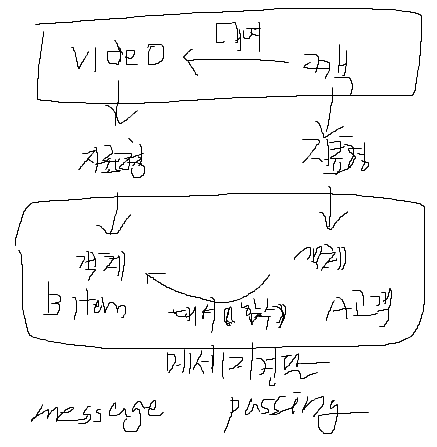 대여
VIDEO 고객
자료형 자료형
객체 객체
B Item 메서드(함수) A고객
메세지전달
message passing